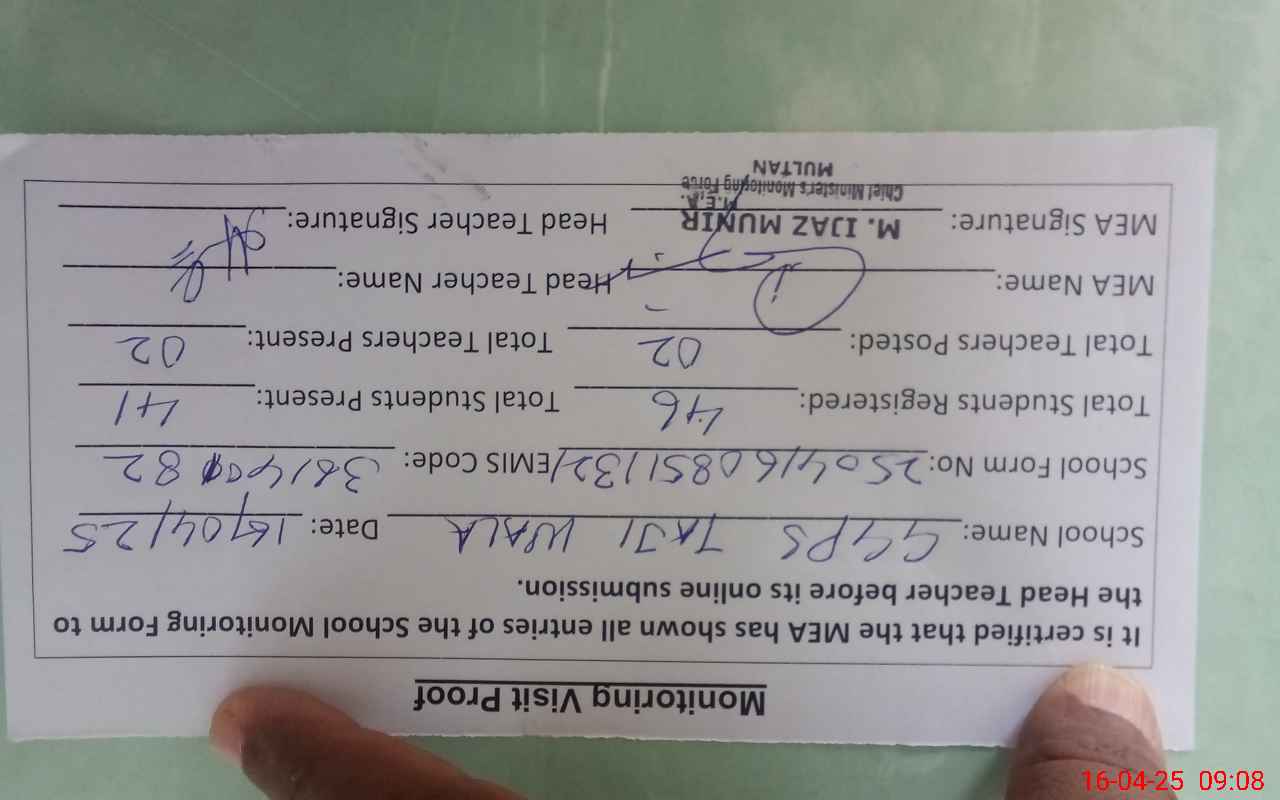 Monitoring Visit Proof
It is certified that the MEA has shown all entries of the School Monitoring Form to
the Head Teacher before its online submission.
School Name: GGPS TAJI WALA Date: 16/04/25
School Form No: EMIS Code:
Total Students Registered: 46 Total Students Present: 41
Total Teachers Posted: 02 Total Teachers Present: 02
MEA Name: Head Teacher Name:
MEA Signature: M. IJAZ MUNIR Head Teacher Signature:
M.E.A.
Chief Minister's Monitoring Force
MULTAN
16-04-25 09:08